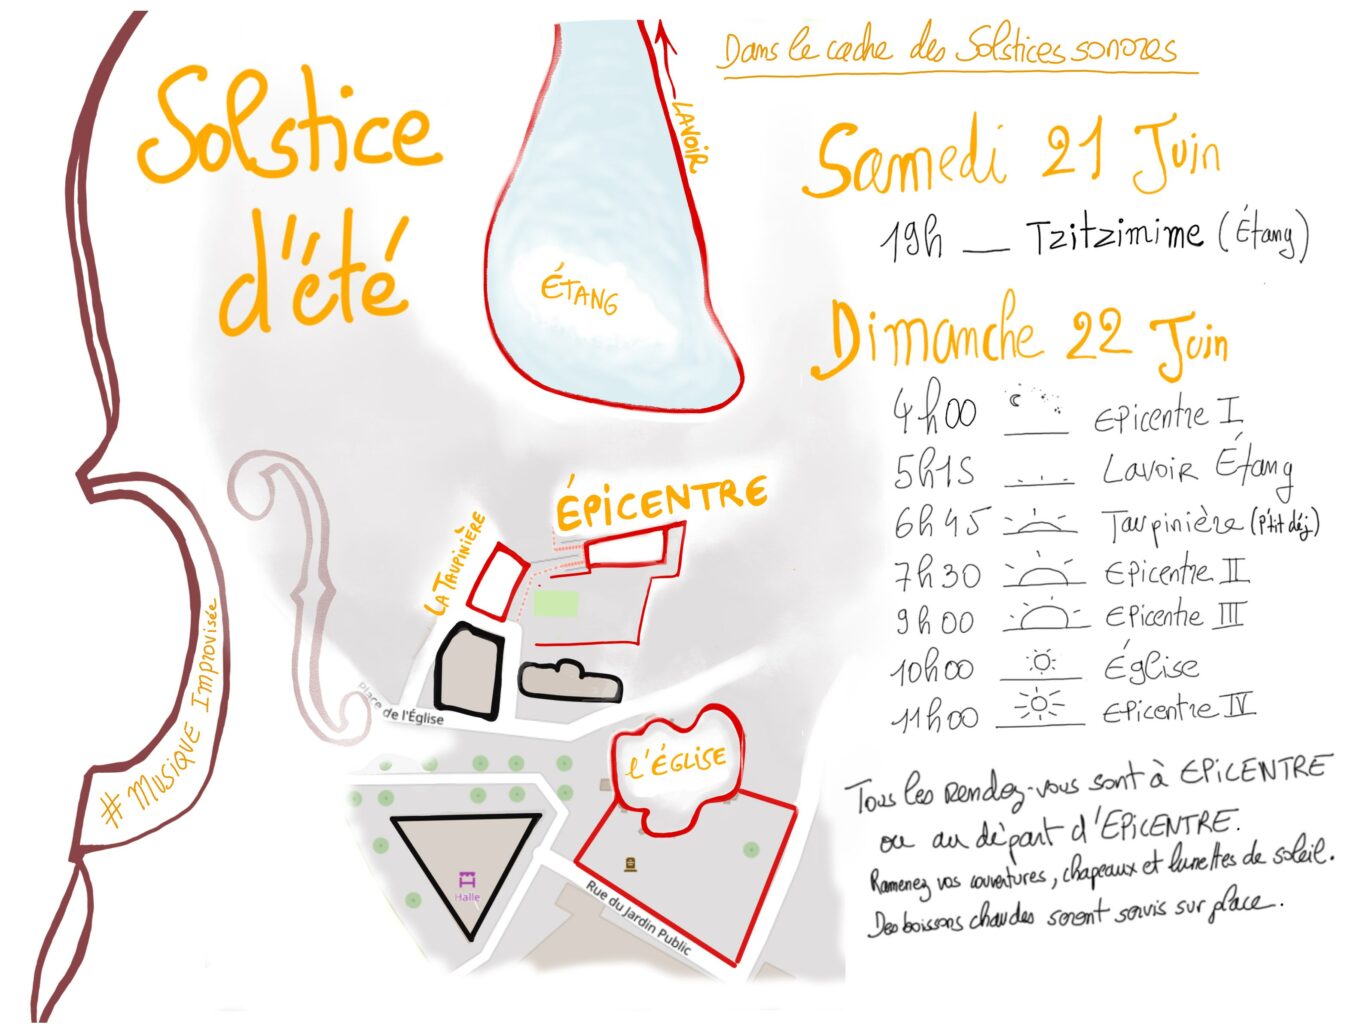 Solstice
d'été
LAVOIR
ÉTANG
ÉPICENTRE
LA TAUPINIÈRE
Place de l'Église
l'ÉGLISE
Halle
Rue du Jardin Public
# MUSIQUE Improvisée
Dans le cadre des Solstices sonores
Samedi 21 Juin
19h __ Tzitzimime (Étang)
Dimanche 22 Juin
4h00 Epicentre I
5h15 Lavoir Étang
6h45 Taupinière (p'tit déj)
7h30 Epicentre II
9h00 Epicentre III
10h00 Église
11h00 Epicentre IV
Tous les rendez-vous sont à EPICENTRE
ou au départ d'EPICENTRE.
Ramenez vos couvertures, chapeaux et lunettes de soleil.
Des boissons chaudes seront servis sur place.